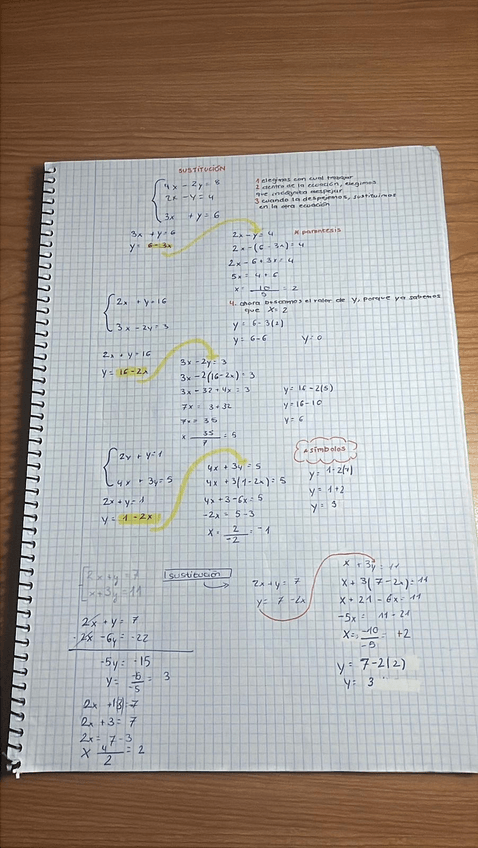 SUSTITUCIÓN
4x - 2y = 8
2x - y = 4
3x + y = 6
1 elegimos con cual trabajar
2 dentro de la ecuación, elegimos
que incognita despejar
3 cuando la despejamos, sustituimos
en la otra ecuación
3x + y = 6
y = 6 - 3x
2x - y = 4
* parentesis
2x - (6 - 3x) = 4
2x - 6 + 3x = 4
5x = 4 + 6
x = 10/5 = 2
4. ahora buscamos el valor de y, porque ya sabemos
que x = 2
y = 6 - 3(2)
y = 6 - 6 y = 0
2x + y = 16
3x - 2y = 3
2x + y = 16
y = 16 - 2x
3x - 2y = 3
3x - 2(16 - 2x) = 3
3x + 32 + 4x = 3
7x = 3 + 32
7x = 35
x 35/7 = 5
y = 16 - 2(5)
y = 16 - 10
y = 6
2x + y = 1
4x + 3y = 5
2x + y = 1
y = 1 - 2x
4x + 3y = 5
4x + 3(1 - 2x) = 5
4x + 3 - 6x = 5
-2x = 5 - 3
x = 2/-2 = -1
* simbolos
y = 1 + 2
y = 3
2x + y = 7
x + 3y = 11
sustitución
2x + y = 7
y = 7 - 2x
x + 3y = 11
x + 3(7 - 2x) = 11
x + 21 - 6x = 11
-5x = 11 - 21
x = -10/-5 = +2
y = 7 - 2(2)
y = 3
2x + y = 7
-2x - 6y = -22
-5y = -15
2x + 3 = 7
2x = 7 - 3
x 4/2 = 2